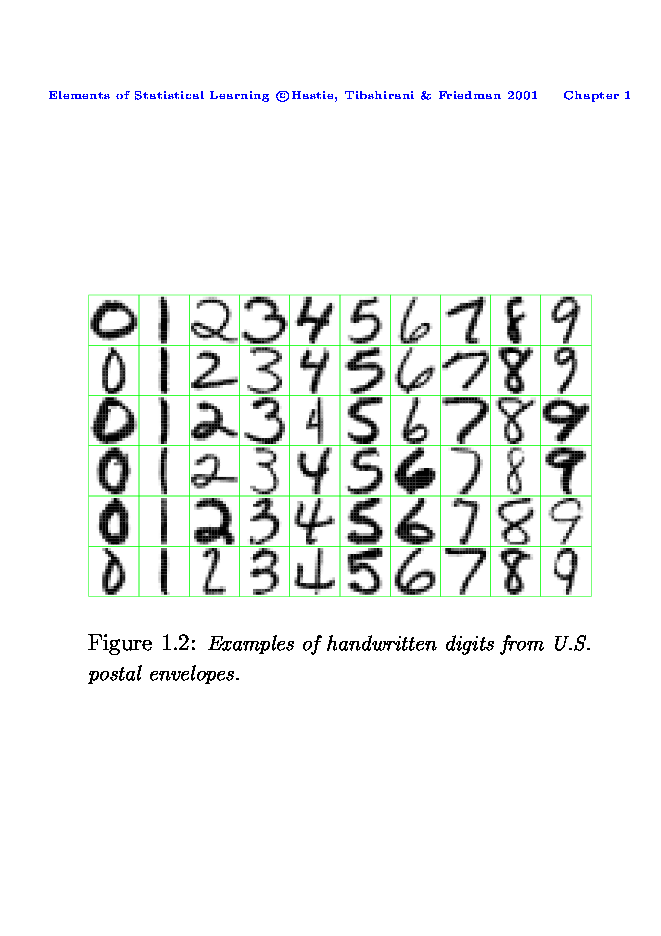 Elements of Statistical Learning ©Hastie, Tibshirani & Friedman 2001 Chapter 1
0 1 2 3 4 5 6 7 8 9
0 1 2 3 4 5 6 7 8 9
0 1 2 3 4 5 6 7 8 9
0 1 2 3 4 5 6 7 8 9
0 1 2 3 4 5 6 7 8 9
0 1 2 3 4 5 6 7 8 9
Figure 1.2: Examples of handwritten digits from U.S.
postal envelopes.